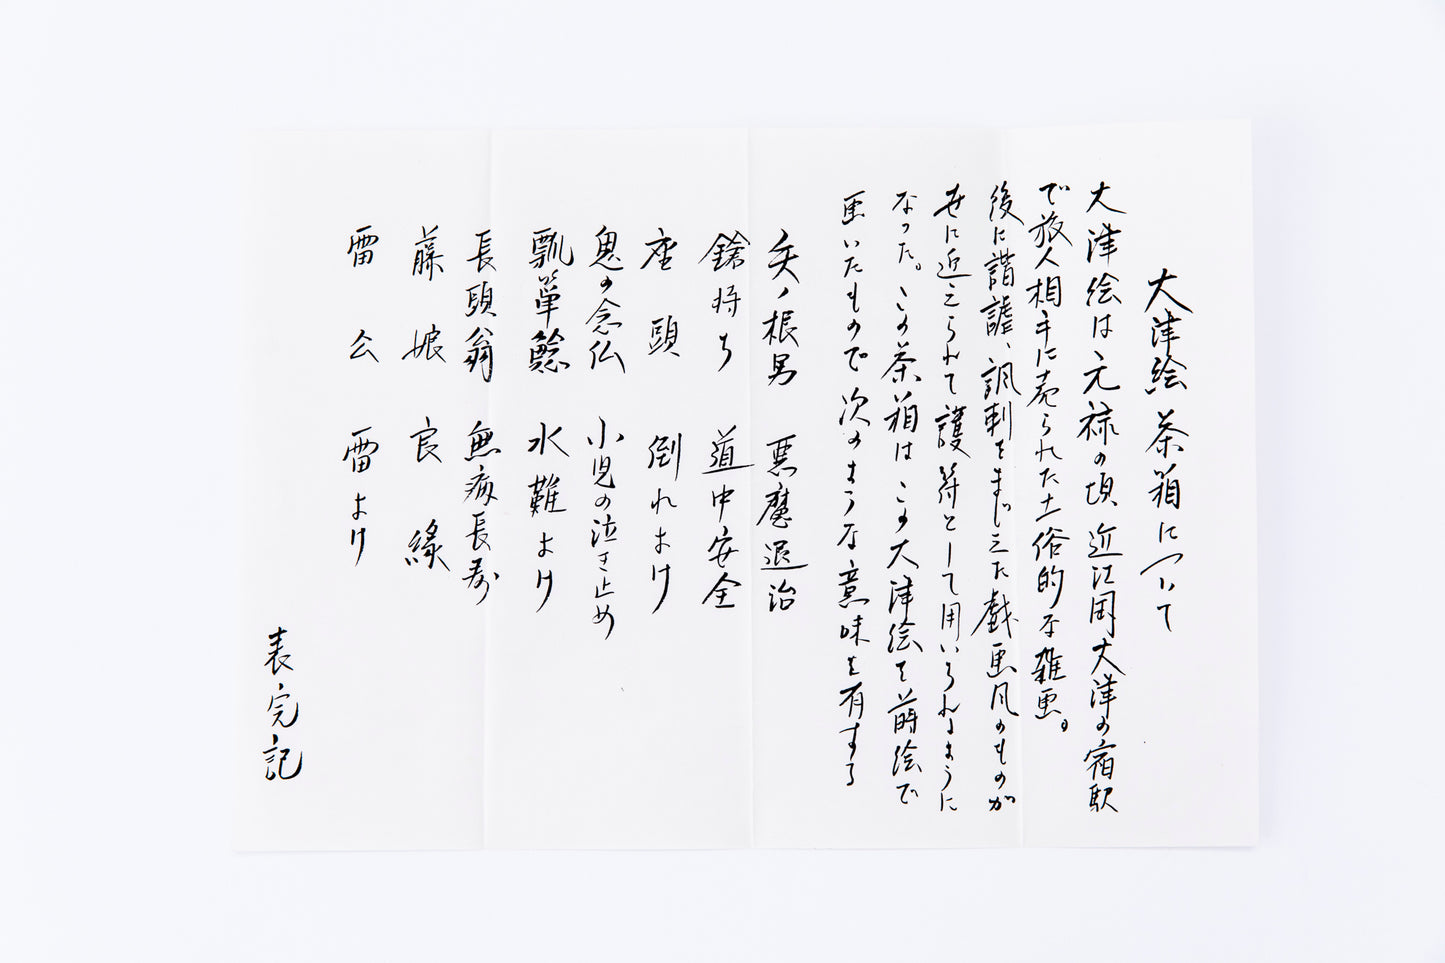 大津絵茶箱について
大津絵は元禄の頃近江国大津の宿駅
で旅人相手に売られた土俗的な雑画。
後に諧謔、諷刺をまじえた戯画風のものが
世に迎えられて護符として用いられるように
なった。この茶箱はこの大津絵を蒔絵で
画いたもので次のような意味を有する
矢ノ根男 悪魔退治
鎗持ち 道中安全
座頭 倒れよけ
鬼の念仏 小児の泣き止め
瓢箪鯰 水難よけ
長頭翁 無病長寿
藤娘 良縁
雷公 雷よけ
表完記